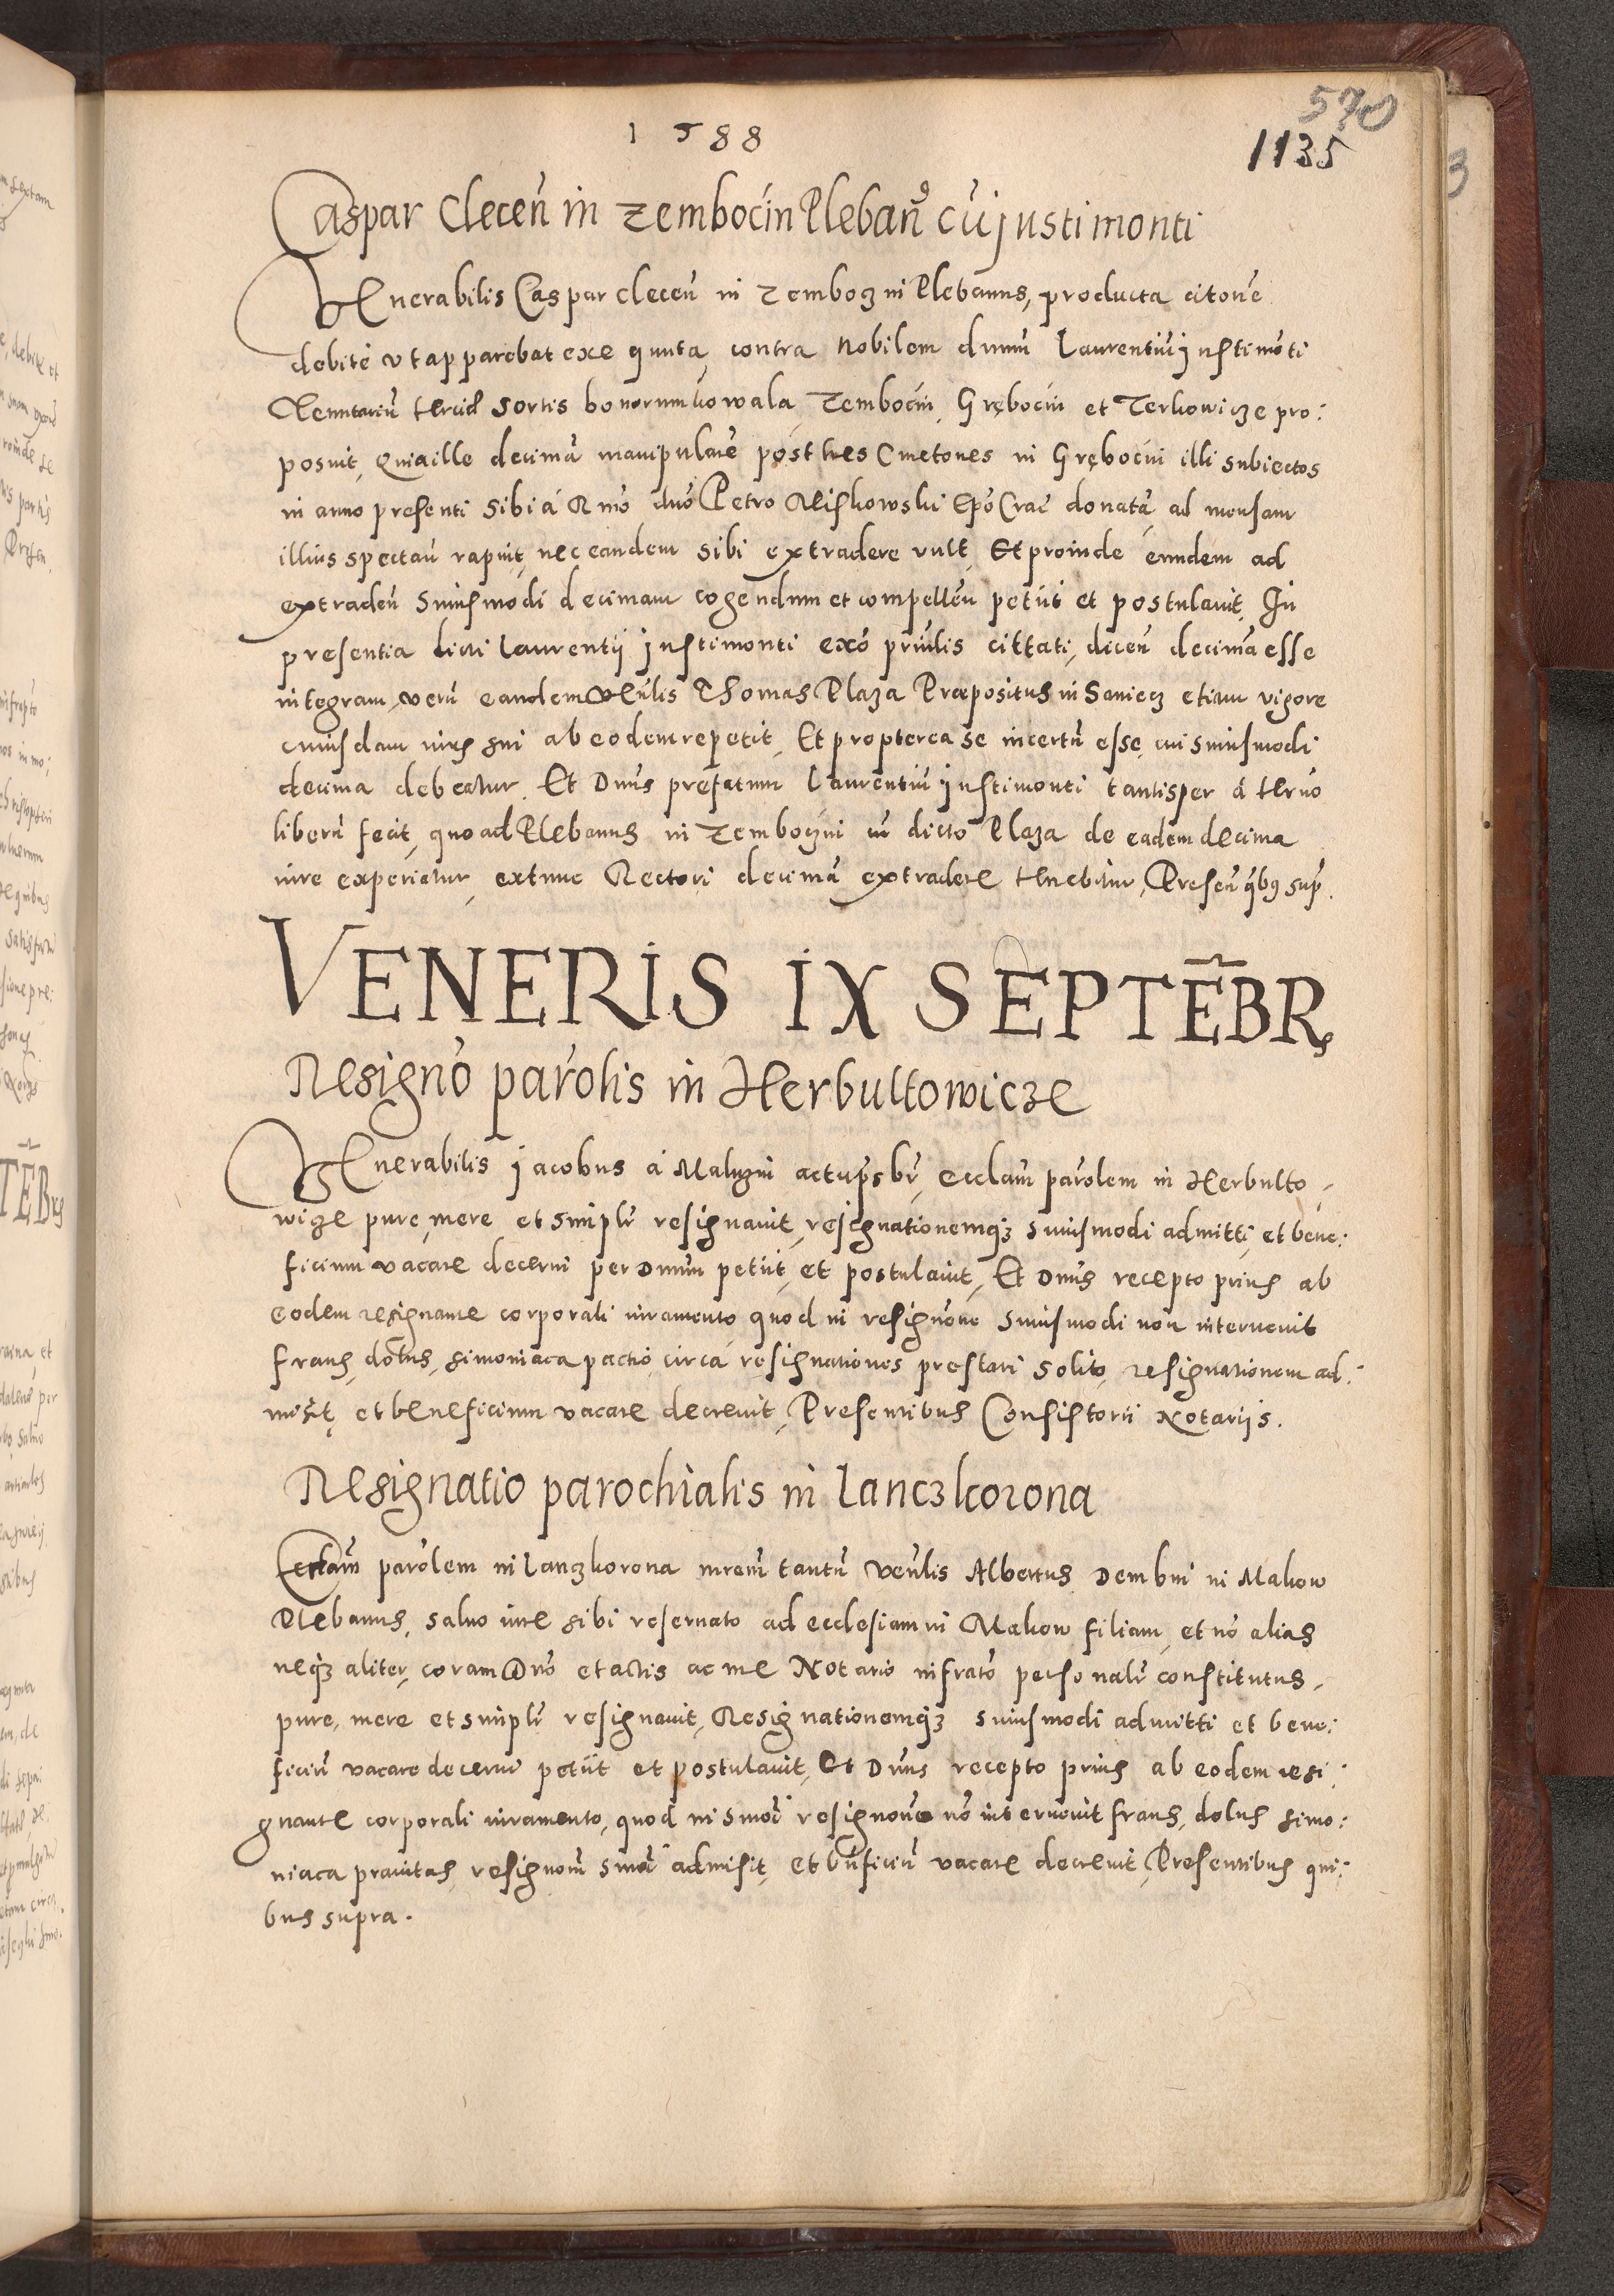 1588
570
1135
Caspar Cleceñ in Zembocin Plebañ9 cū justimonti
VEnerabilis Caspar cleceñ in Zemboczin Plebanus, producta citone
debite ut apparebat exequuta, contra Nobilem dnum Laurentiū justimōti
sortis bonorum kowala, Zembocin, Grębocin et Terkowicze pro:
posuit, Quia ille decimā manipularē post tres Cmetones in Grębocini illi subiectos
in anno presenti sibi á Rmo dnō Petro Miskowski Epō Crac donatā, ad mensam
illius spectañ rapuit, nec eandem sibi extradere vult, Et proinde eundem ad
extradeñ huiusmodi decimam cogendum et compelleñ petiit et postulavit, In
presentia dicti Laurentij justimonti exō priūlis cittati, diceñ decimā esse
integram, verū eandem Veñlis Thomas Plaza Præpositus in Sanicz etiam vigore
cuiusdam iuris sui ab eodem repetit, Et propterea se incertū esse, cui huiusmodi
decima debeatur. Et Dnus prefatum Laurentiū justimonti tantisper á terño
liberū fecit, quoad Plebanus in Zemboczini cū dicto Plaza de eadem decima
iure experiatur, extunc Rectori decimā extradere tenebitur, Preseñ qbus sup.
VENERIS IX SEPTĒBR
Resignō parolis in Herbultowicze
VEnerabilis jacobus á Maluzin actupsbr, Ecclam parolem in Herbulto-
wicze pure, mere et simplr resignavit, resignationemq3 huiusmodi admitti, et bene:
ficium vacare decerni per Dnum petiit, et postulavit, Et Dnus recepto prius ab
eodem resignante corporali iuramento quod in resignone huiusmodi non intervenit
fraus, dolus, simoniaca pactio, circa resignationes prestari solito, resignationem ad:
misit, et beneficium vacare decrevit, Presentibus Consistorii Notarijs.
Resignatio parochialis in Lanczkorona
Ecclam parolem in Lanczkorona mrem tantū Veñlis Albertus Dembni in Makow
Plebanus, salvo iure sibi reservato ad ecclesiam in Makow filiam, et nō alias
neq3 aliter, coram Dnō et actis ac me Notario infrato personalr constitutus,
pure, mere et simplr resignavit, Resignationemq3 huiusmodi admitti et bene:
ficiū vacare decerni petiit et postulavit, Et Dnus recepto prius ab eodem resi:
gnante corporali iuramento, quod in hmoi resignone nō intervenit fraus, dolus simo:
niaca pravitas, resignom hmoi admisit, et bnficiū vacare decrevit, Presentibus qui:
bus supra.